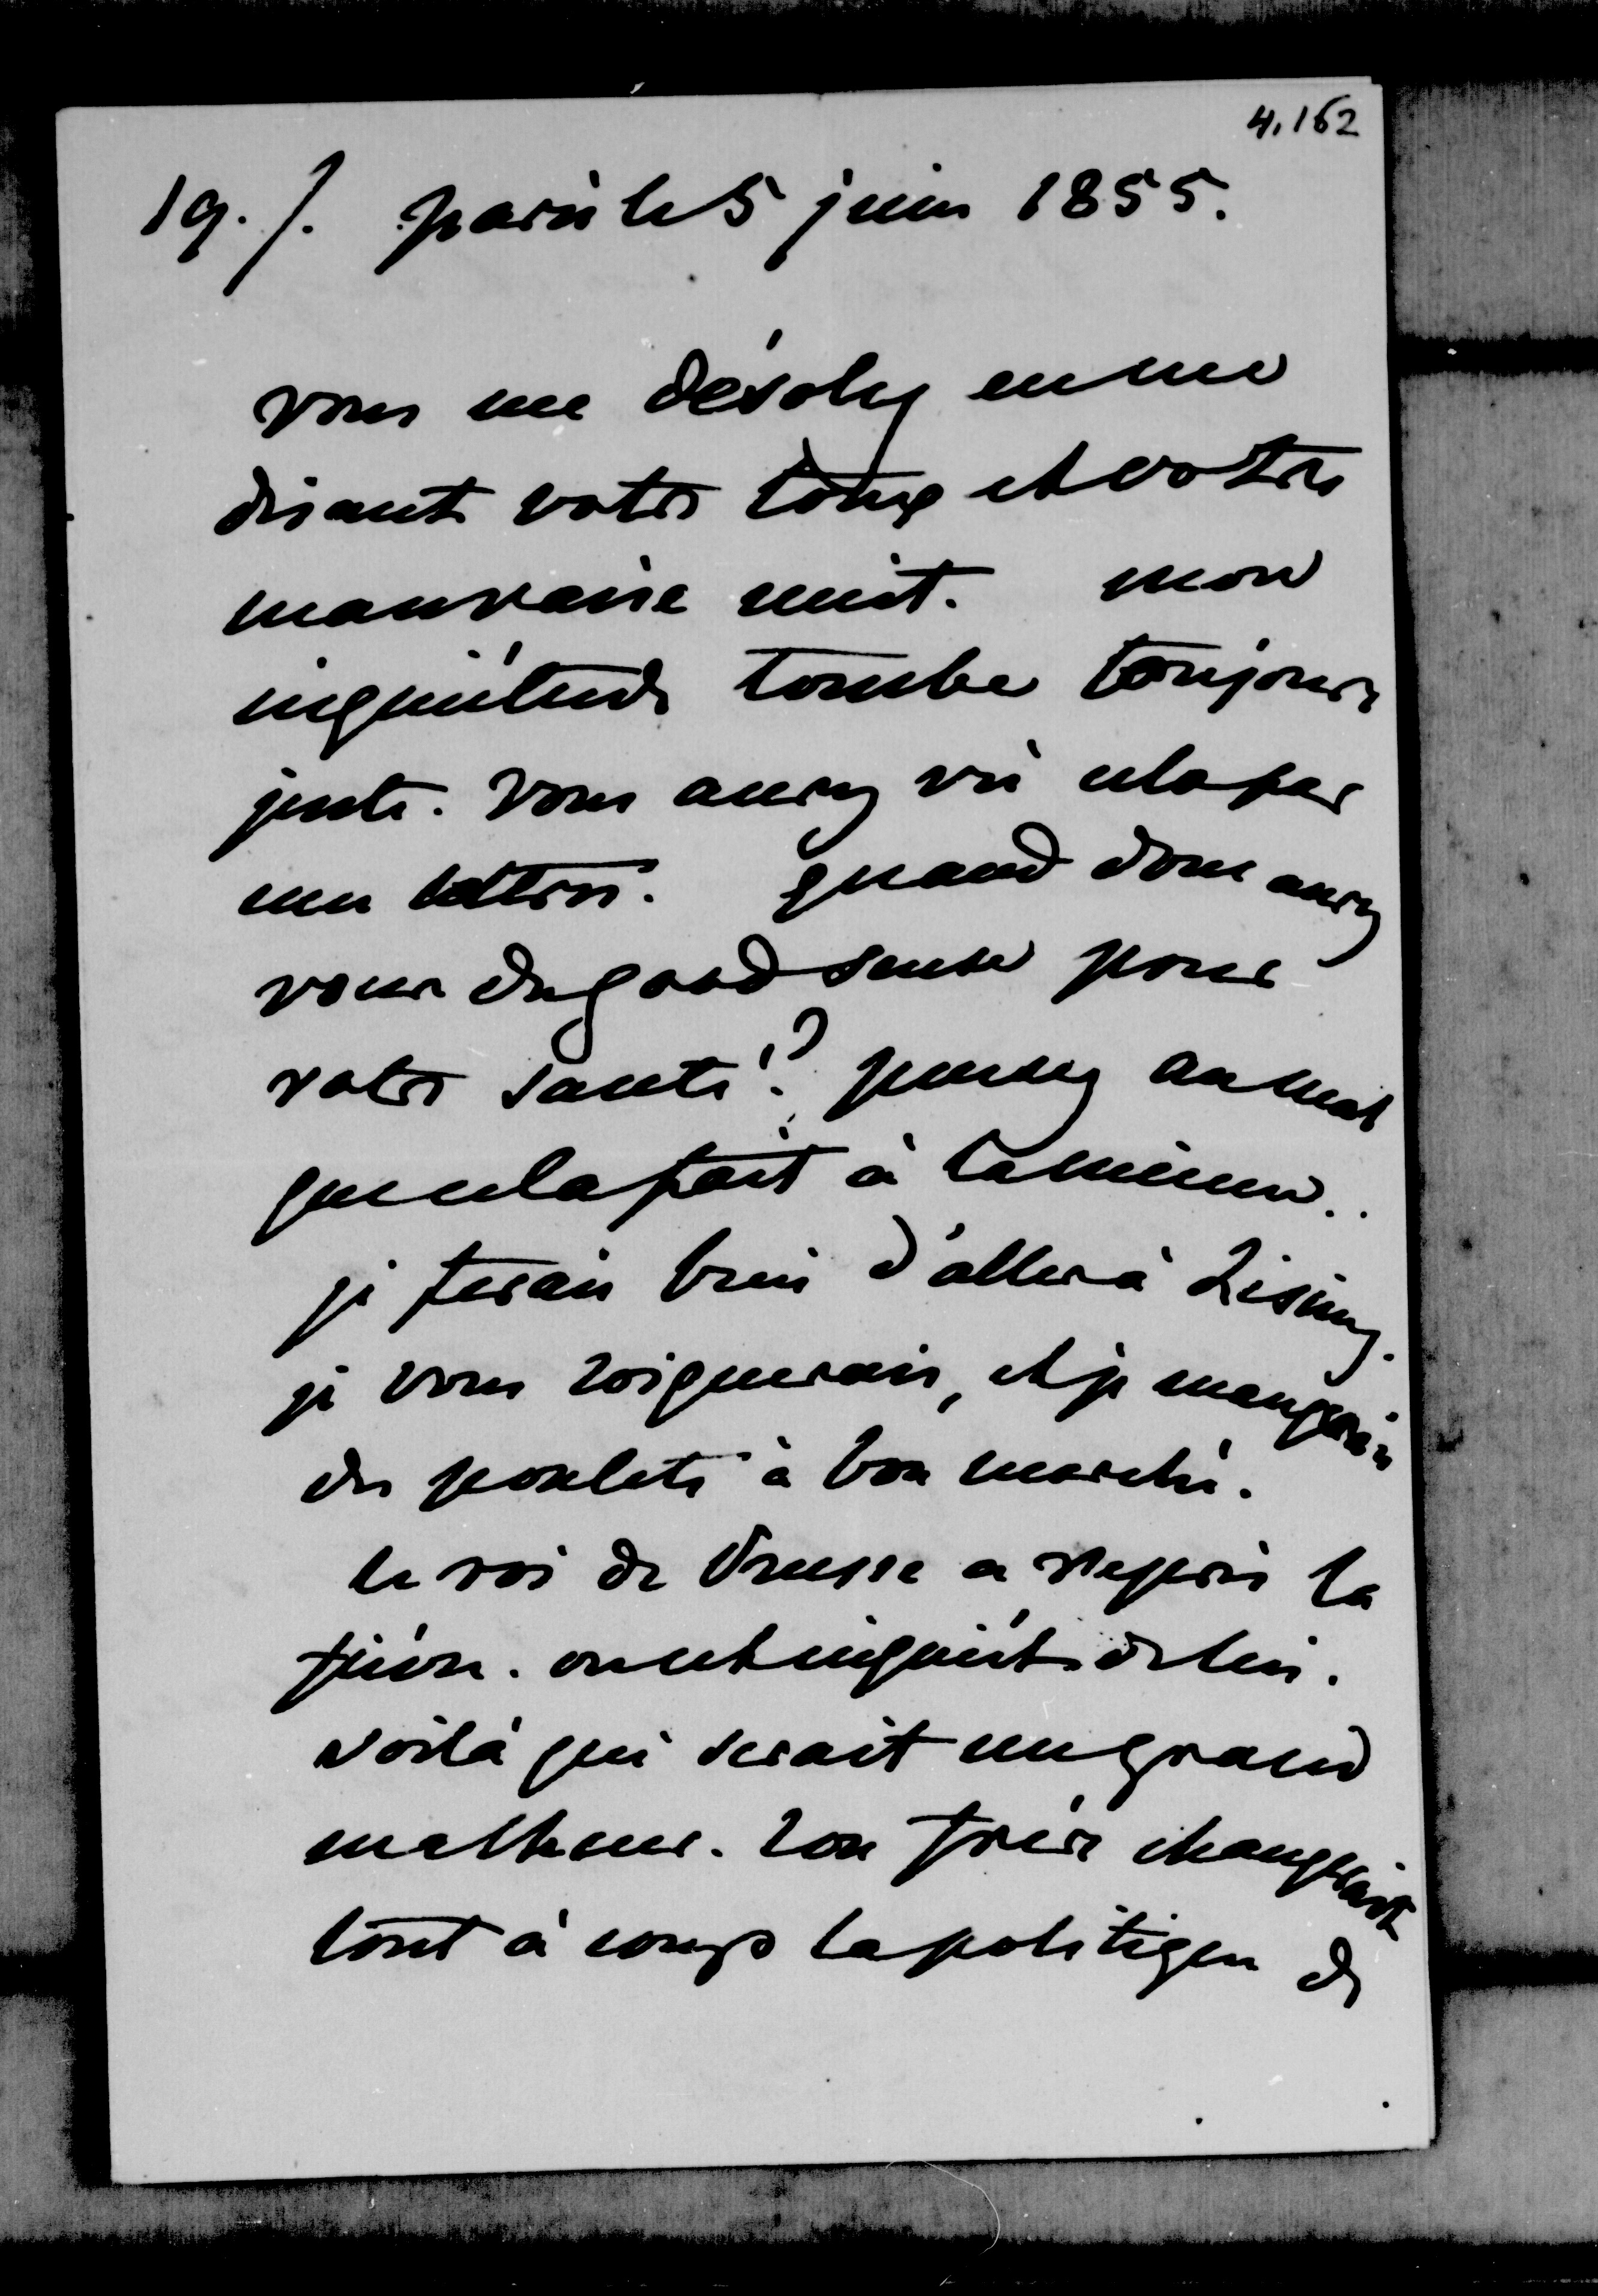 4.162
19. /. paris le 5 juin 1855.
vous me désolez en me
disant votre toux et votre
mauvaise nuit. mon
inquiétude tombe toujours
juste. vous aurez vu cela par
ma lettre. quand donc aurez
vous du good sense pour
votre santé? pensez au mal
que cela fait à la mienne..
je ferais bien d'aller à Lisieux.
je vous soignerais, et je mangerais
des poulets à bon marché.
le roi de Prusse a repris la
fièvre. on est inquiet de lui.
voilà qui serait un grand
malheur. son frère changerait
tout à coup la politique de